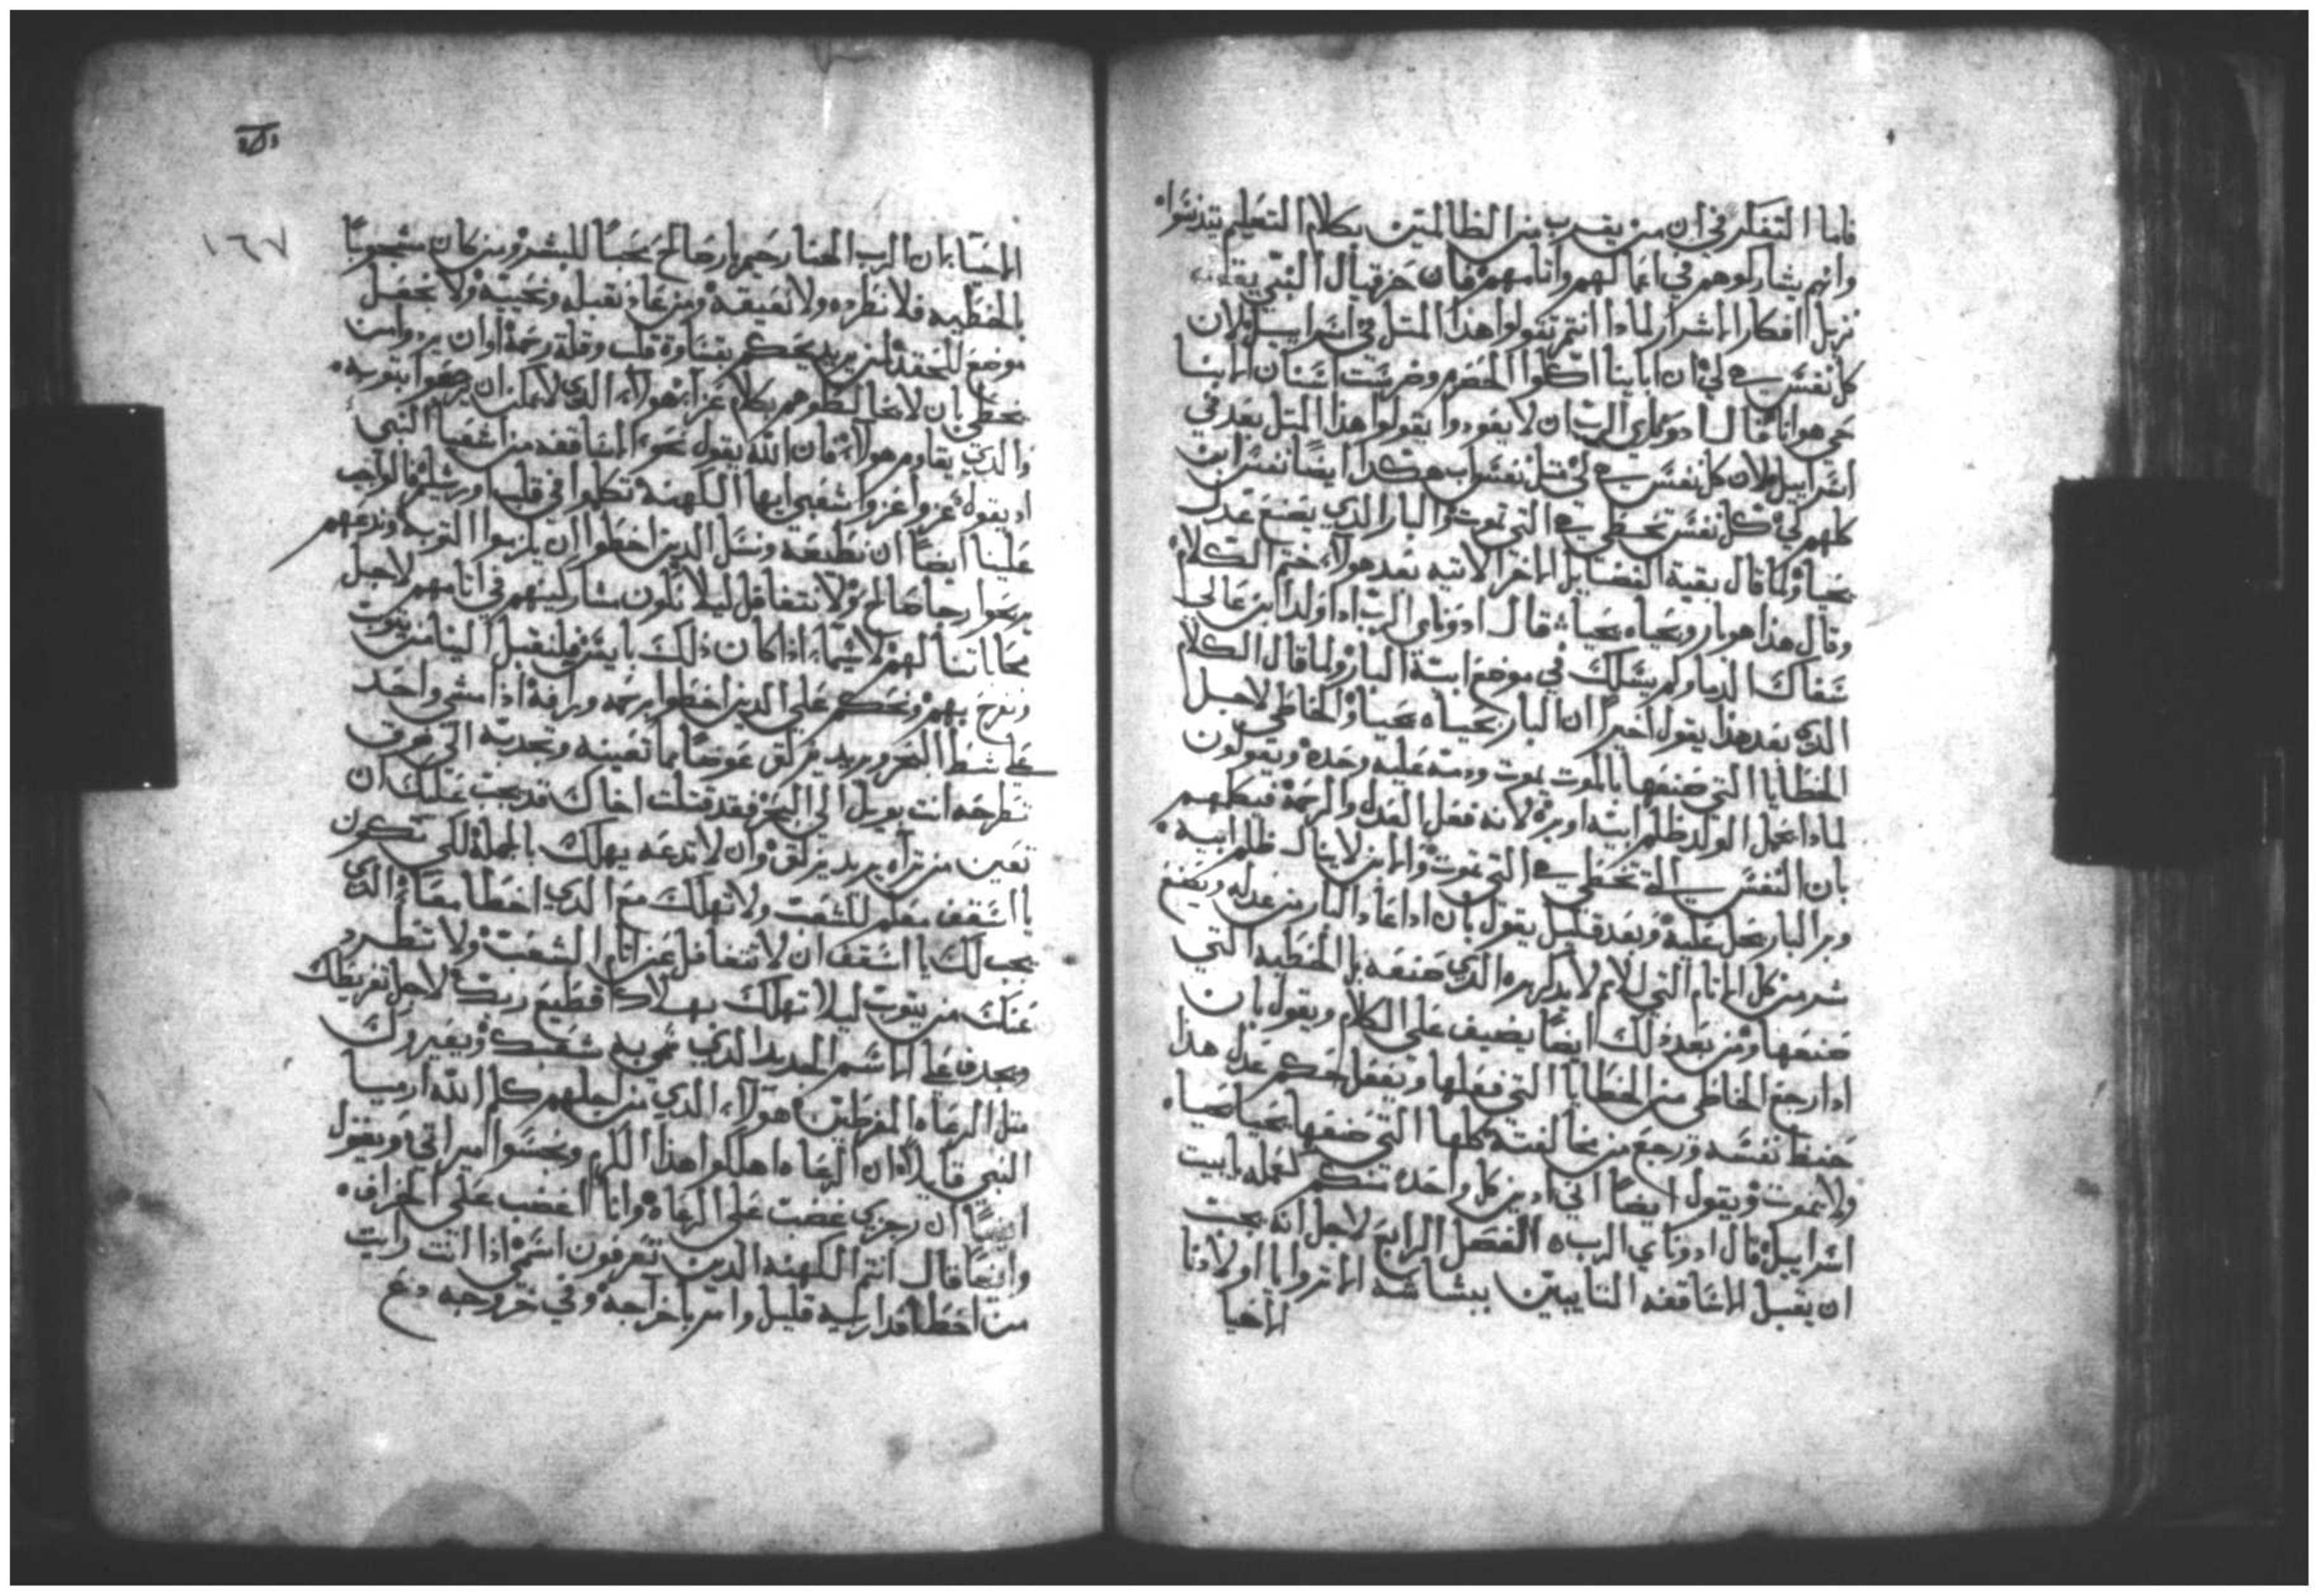 فاما التفكر في ان من يقترب من الظالمين بكلام التعليم يتدنسوا
وانهم يشاركوهم في اعمالهم واثامهم فان حزقيال النبي يقاوم
نزيل افكار الاشرار لماذا انتم تقولوا هذا المثل في اسراييل لان
كل نفس هي لي ان اباينا اكلوا الحصرم وضرست اسنان الابنا
حي هو انا قال ادوناي الرب ان لا يعودوا يقولوا هذا المثل بعد في
اسراييل لان كل نفس هي لي مثل نفس اب هكذا ايضا نفس ابن
كلهم لي كل نفس تخطي هي التي تموت والبار الذي يصنع عدل
يحيا ولما قال بقية الفضايل الاخر الاتيه بعد هولاء ختم الكلام
وقال هذا هو بار وبحياه يحيا قال ادوناي الرب اذا ولد ابن
سفاك الدما ولم يسلك في موضع ابيه البار ولما قال الكلام
الذي بعد هذا يقول اخيرا ان البار بحياه يحيا والخاطي لاجل
الخطايا التي صنعها بالموت يموت ودمه عليه وحده وتقولون
لماذا يحمل الولد ظلم ابيه او بره لانه فعل العدل والرحمة فيكلمهم
بان النفس التي تخطي هي التي تموت والابن لا ينال ظلم ابيه
وبر البار يحل عليه وبعد قليل يقول بان اذا عاد البار من عدله ويصنع
شر من كل الاثام التي للاثم لا يذكر بره الذي صنعه بل الخطيه التي
صنعها ومن بعد ذلك ايضا يضيف على الكلام ويقول بان
اذا رجع الخاطي من الخطايا التي فعلها ويفعل حكم عدل هذا
حفظ نفسه ورجع من مخالفته كلها التي صنعها بحياه يحيا
ولا يموت ويقول ايضا اني ادين كل واحد منكم كعمله يا بيت
اسراييل قال ادوناي الرب الفصل الرابع لاجل انه يجب
ان يقبل الاساقفه التايبين ببشاشه الا تروا يا اولادنا
الاحبا
١٦٧
الاحبا ان الرب الهنا رحيم بار صالح محبا للبشر ومن كان مشجوبا
بالخطيه فلا نطرده ولا نعيقه ومن عاد نقبله ونحييه ولا نجعل
موضع للحقد لمن يريد يحكم بقساوة قلب وقلة رحمة او ان يردوا من
يخطي بان لا يخالطوهم بكلام عزاء هولاء الذي لا يمكن ان يرجعوا بتوبه
والذي يقاوم هولاء فان الله يقول نحو الاساقفه من اشعيا النبي
اذ يقول عزوا عزوا شعبي ايها الكهنه تكلموا في قلب اورشليم فالواجب
علينا ايضا ان نطيعه ونسل الذين اخطوا ان يلزموا التوبه وندعهم
يرجوا رجا صالح ولا نتغافل ليلا نكون مشاركينهم في اثامهم لاجل
محاباتنا لهم لاسيما اذا كان ذلك بايسر فلنقبل الينا من يتوب
ونفرح بهم ونحكم على الذين اخطوا برحمه وبرافة اذا مشي واحد
على شط النهر ويريد يزلق عوضا ما تعينه وتجذبه الى فوق
تطرحه انت بويل الى البحر فقد قتلت اخاك قد يجب عليك ان
تعين من تراه يريد يزلق وان لا تدعه يهلك بالجملة لكي تكون
يا اسقف معلم للشعب ولا تهلك مع الذي اخطا معا الذي
يجب لك يا اسقف ان لا تتغافل عن اثام الشعب ولا تطرد
عنك من يتوب ليلا تهلك بهلاك قطيع ربك لاجل تفريطك
ويجدف على الاسم الجديد الذي سمي به شعبك ويعيروك
مثل الرعاه المفرطين هولاء الذي من اجلهم كلم الله ارميا
النبي قايلا ان الرعاه اهلكوا هذا الكرم ونجسوا ميراثي ويقول
ايضا ان رجزي غضب على الرعاه وانا اغضب على الخراف
وايضا قال انتم الكهنه الذين تعرفون اسمي اذا انت رايت
من اخطا قدار ليه قليل وامر باخراجه وفي خروجه دع